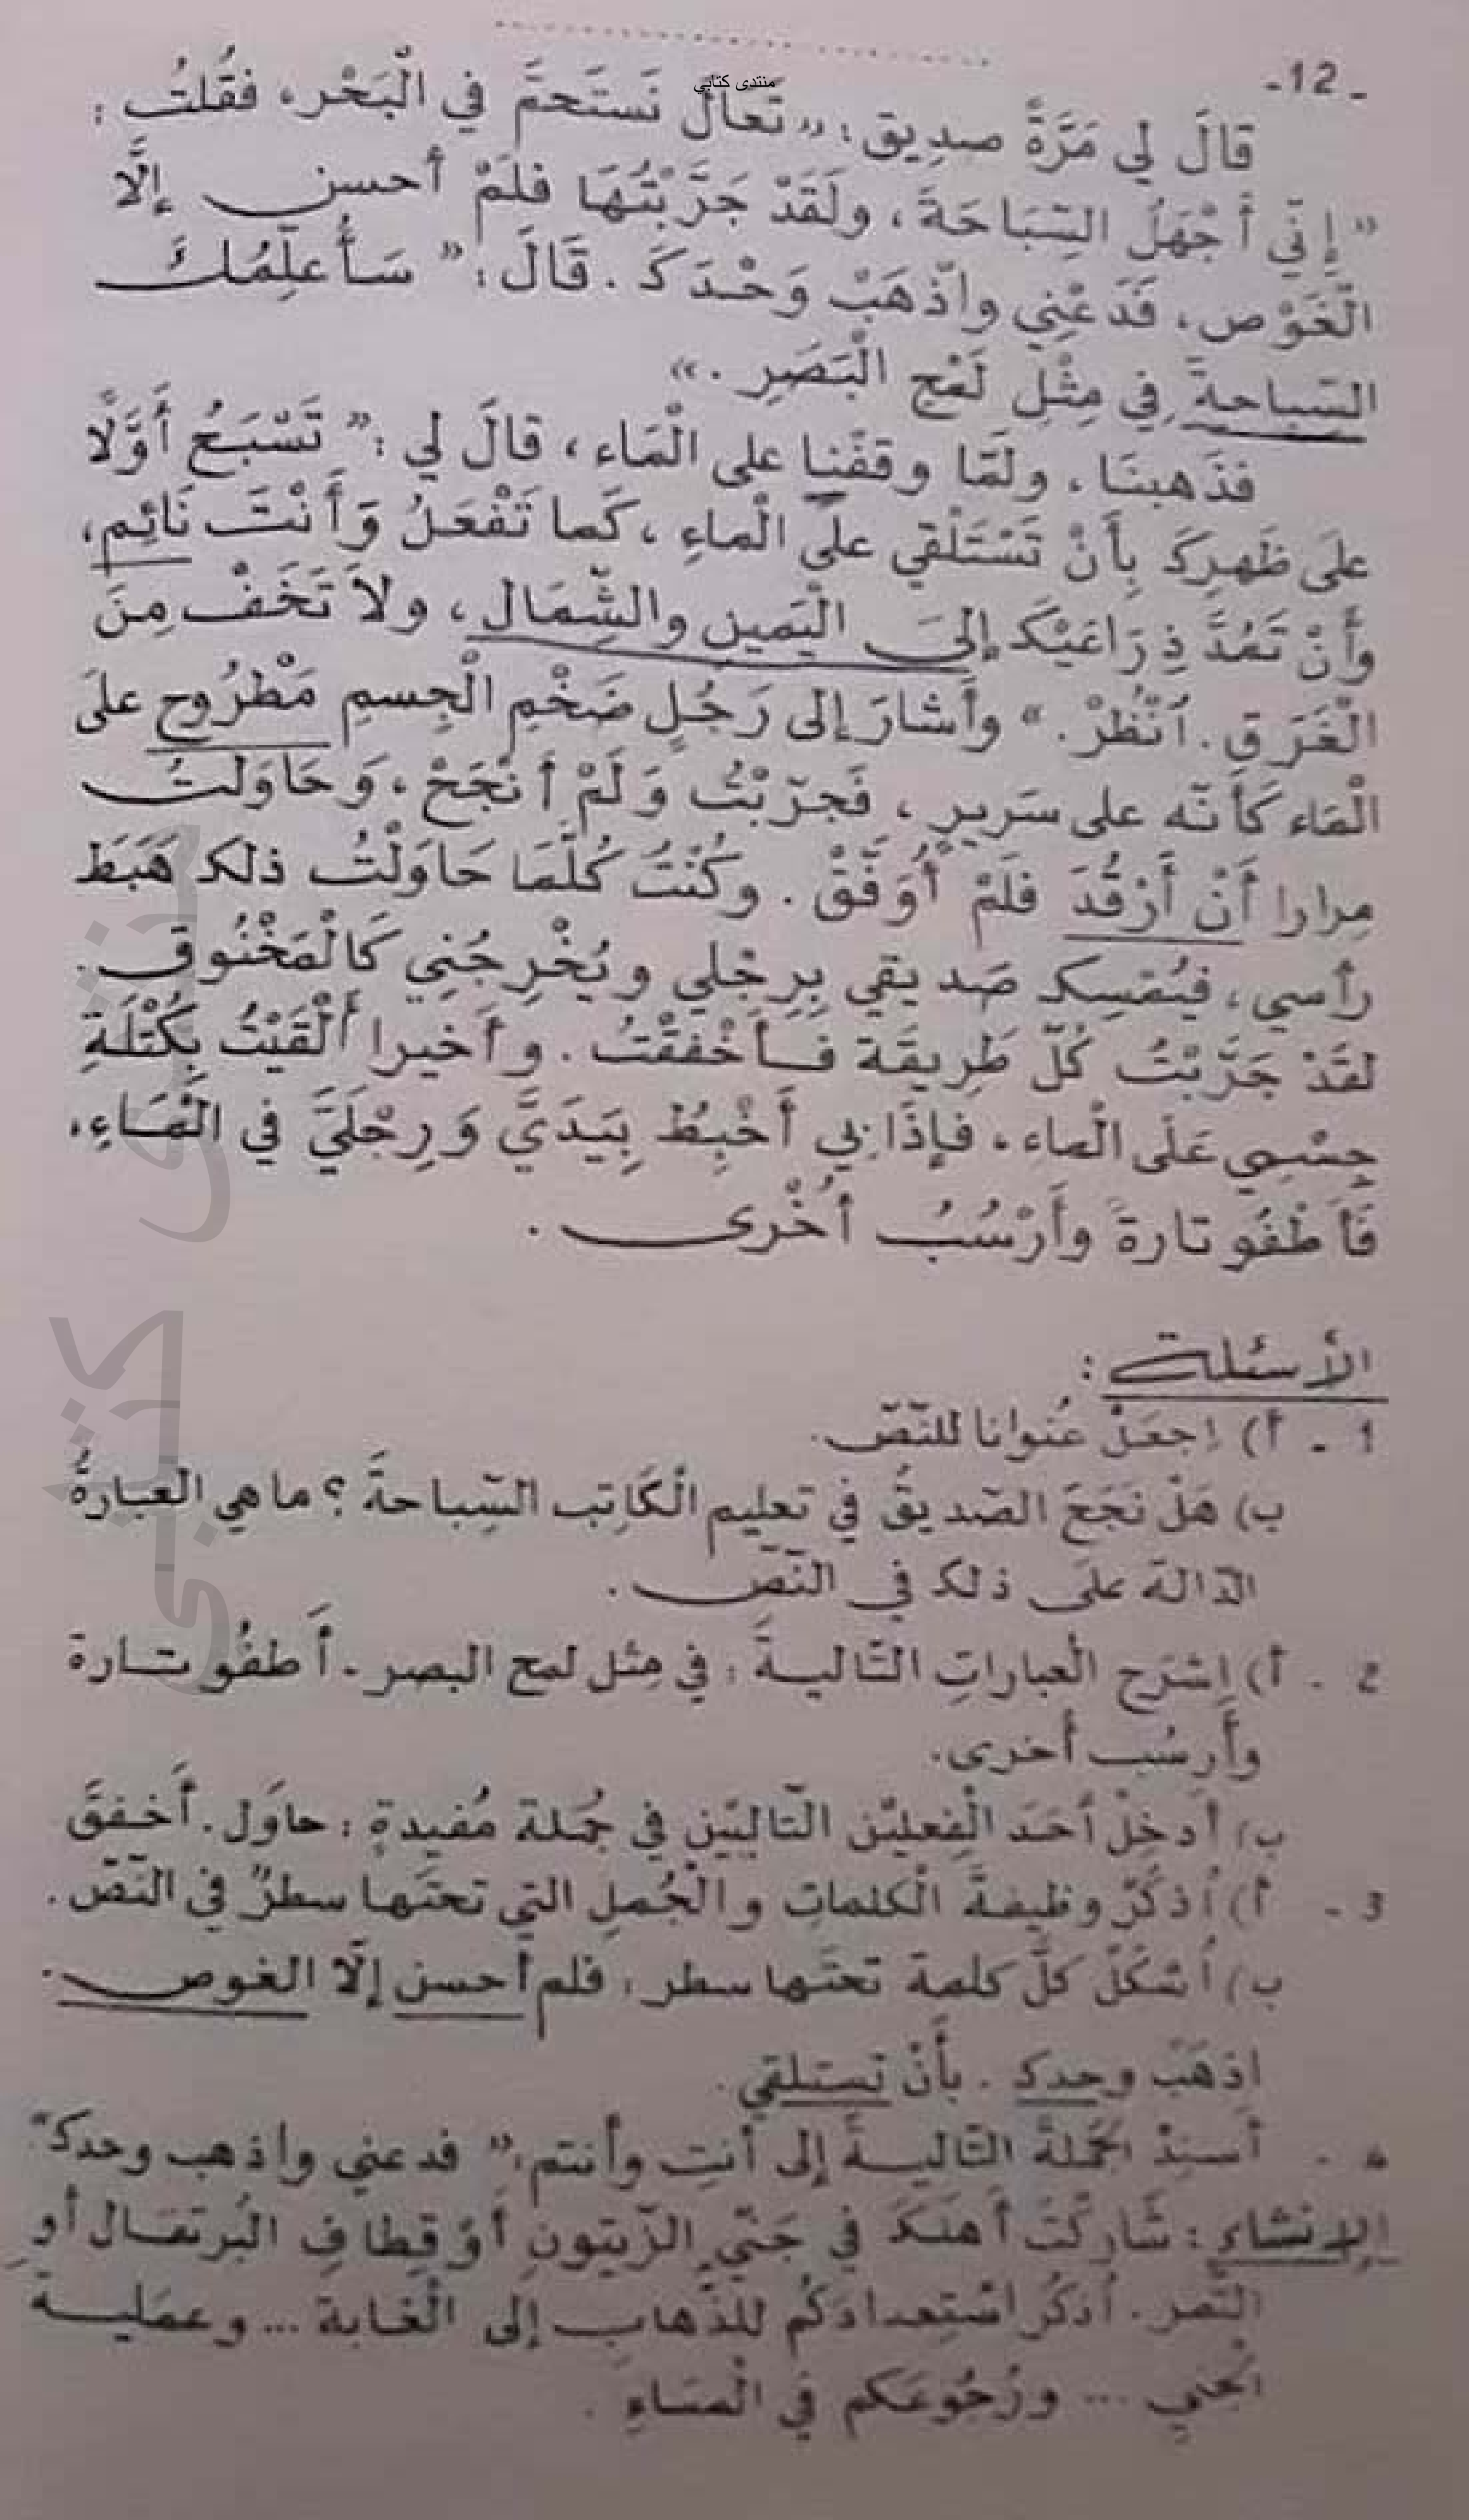 منتدى كتابي
- 12 -
قالَ لي مَرَّةً صديق : « تَعالَ نَستَحمَّ في الْبَحْر ، فقُلتُ :
« إنّي أَجْهَلُ السّبَاحَةَ ، ولَقَدْ جَرَّبْتُهَا فلَمْ أحسن إلَّا
الْغَوْص ، فَدَعْنِي واذْهَبْ وَحْدَكَ . قَالَ : « سَأُعلِّمُكَ
السّباحةَ في مِثْلِ لَمْحِ الْبَصَرِ . »
فذَهبنَا ، ولمّا وقفْنا على الْمَاء ، قالَ لي : « تَسْبَحُ أَوَّلًا
علَى ظَهرِكَ بِأَنْ تَسْتَلْقي علَى الْماءِ ، كَما تَفْعَلُ وَأَنْتَ نَائِم ،
وأَنْ تَمُدَّ ذِرَاعَيْكَ إلىَ الْيَمينِ والشِّمَال ، ولاَ تَخَفْ مِنَ
الْغَرَقِ . اُنْظُرْ . » وأَشارَ إلى رَجُلٍ ضَخْمِ الْجِسمِ مَطْرُوحٍ علَى
الْمَاء كَأَنّه على سَريرٍ ، فَجرّبْتُ وَلَمْ أنْجَحْ ، وَحَاوَلتُ
مِرارا أَنْ أَرْقُدَ فلَمْ أُوَفَّقْ . وكُنْتُ كُلَّمَا حَاوَلْتُ ذلك هَبَطَ
رأسي ، فيُمْسِكُ صَديقي بِرِجْلي ويُخْرِجُنِي كَالْمَخْنُوق .
لقَدْ جَرَّبْتُ كُلّ طَرِيقَة فَأَخْفقْتُ . وأخيرا أَلْقَيْتُ بِكُتْلَةِ
جِسْمِي عَلَى الْماء ، فإِذَا بي أَخْبِطُ بِيَدَيَّ وَرِجْلَيَّ في الْمَاءِ ،
فَأَطْفُو تارة وأَرْسُبُ أُخْرى .
الأسئلة :
1 - أ) اِجعَلْ عُنوانا للنّصّ .
ب) هَلْ نَجَحَ الصّديقُ في تعليم الْكَاتِب السّباحةَ ؟ ما هي العبارةُ
الدّالة علَى ذلك في النّصّ .
2 - أ) اِشرَح الْعباراتِ التّاليةَ : في مِثل لمح البصر . أَطفُو تارة
وأَرسُب أخرى .
ب) أَدخِلْ أحَدَ الْفِعليْن التّاليَيْن في جُملة مُفيدةٍ : حاوَل . أَخفقَ
3 - أ) اُذكُرْ وظيفةَ الْكلماتِ والْجُملِ التي تحتَها سطرٌ في النّصّ .
ب) اُشكُلْ كلَّ كلمة تحتَها سطر : فلم أحسن إلّا الغوص .
اِذهَبْ وحدك . بأَنْ تستلقي .
4 - أَسنِدْ الجُملةَ التّاليةَ إلى أنتِ وأنتم : « فدعني واذهب وحدك »
الإنشاء : شَاركْتَ أهلَكَ في جَنْيِ الزّيتونِ أوْ قِطافِ البُرتقال أو
التّمر . اُذكُر اسْتِعدادَكُم للذّهابِ إلى الْغابة ... وعمَليةَ
الجني ... ورُجُوعَكم في الْمسَاءِ .